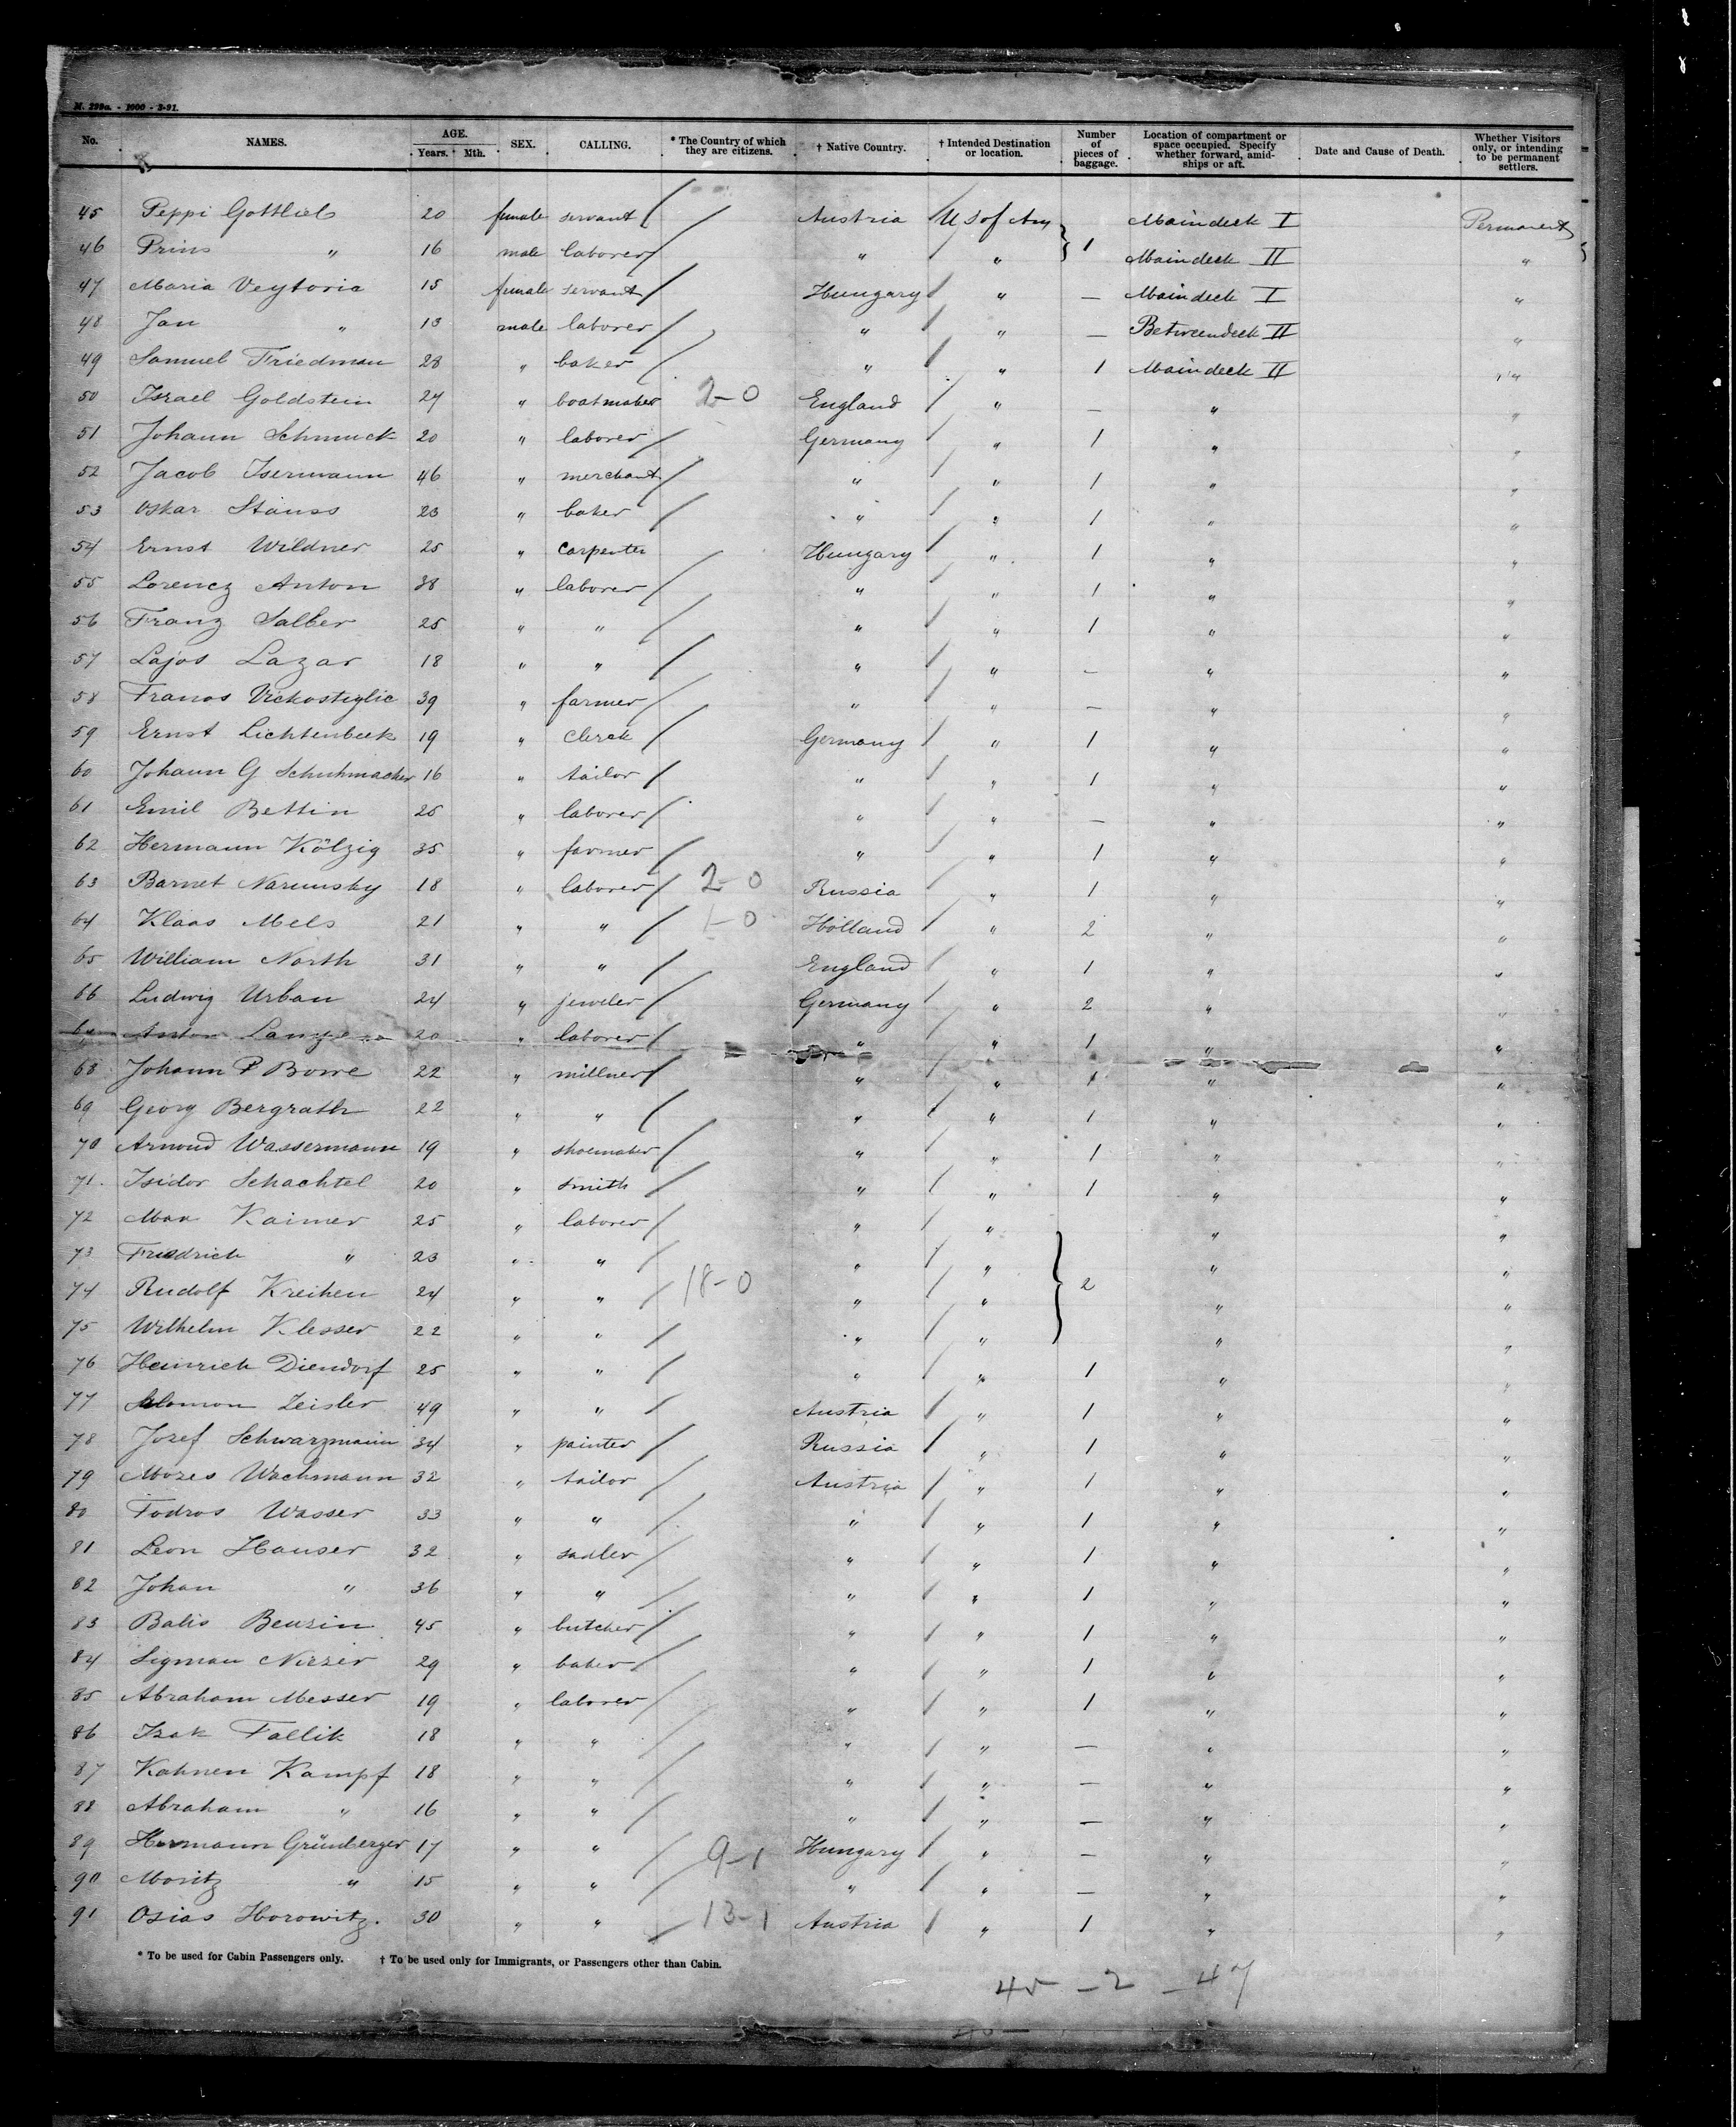 M. 299a. - 1000 - 3-91.
No. NAMES. AGE. Years. Mth. SEX. CALLING. * The Country of which they are citizens. † Native Country. † Intended Destination or location. Number of pieces of baggage. Location of compartment or space occupied. Specify whether forward, amidships or aft. Date and Cause of Death. Whether Visitors only, or intending to be permanent settlers.
45 Peppi Gottlieb 20 female servant / Austria U S of Am Maindeck I Permanent
46 Prins " 16 male laborer / " " 1 Maindeck II "
47 Maria Veytoria 15 female servant / Hungary / " — Maindeck I "
48 Jan " 13 male laborer / " / " — Betweendeck II "
49 Samuel Friedman 28 " baker / " / " 1 Maindeck II "
50 Israel Goldstein 24 " boatmaker 2-0 England / " — " "
51 Johann Schmuck 20 " laborer / Germany / " 1 " "
52 Jacob Isermann 46 " merchant / " / " 1 " "
53 Oskar Stauss 23 " baker / " / " 1 " "
54 Ernst Wildner 25 " carpenter Hungary / " 1 " "
55 Lorencz Anton 38 " laborer / " / " 1 " "
56 Franz Salber 25 " " / " / " 1 " "
57 Lajos Lazar 18 " " / " / " — " "
58 Franos Vickostiglic 39 " farmer / " / " — " "
59 Ernst Lichtenbeck 19 " clerck / Germany / " 1 " "
60 Johann G Schuhmacher 16 " tailor / " / " 1 " "
61 Emil Bettin 25 " laborer / " / " — " "
62 Hermann Kölzig 35 " farmer / " / " 1 " "
63 Barnet Narunsky 18 " laborer / 2-0 Russia / " 1 " "
64 Klaas Mels 21 " " / 1-0 Holland / " 2 " "
65 William North 31 " " / England / " 1 " "
66 Ludwig Urban 24 " jeweler / Germany / " 2 " "
Anton Lange 20 " laborer / " / " 1 " "
68 Johann P Bowe 22 " millner / " / " 1 " "
69 Georg Bergrath 22 " " / " / " 1 " "
70 Arnoud Wassermann 19 " shoemaker / " / " 1 " "
71 Isidor Schachtel 20 " smith / " / " 1 " "
72 Max Kaimer 25 " laborer / " / " " "
73 Friedrich " 23 " " / " / " " "
74 Rudolf Kreihen 24 " " / 18-0 " / " 2 " "
75 Wilhelm Klesser 22 " " / " / " " "
76 Heinrich Diendorf 25 " " / " / " 1 " "
77 Salomon Zeisler 49 " " / Austria / " 1 " "
78 Josef Schwarzmann 34 " painter / Russia / " 1 " "
79 Mozes Wachmann 32 " tailor / Austria / " 1 " "
80 Todros Wasser 33 " " / " / " 1 " "
81 Leon Hauser 32 " sadler / " / " 1 " "
82 Johan " 36 " " / " / " 1 " "
83 Balis Beusin 45 " butcher / " / " 1 " "
84 Sigman Niezer 29 " baker / " / " 1 " "
85 Abraham Messer 19 " laborer / " / " 1 " "
86 Isak Fallik 18 " " / " / " — " "
87 Kahnen Kampf 18 " " / " / " — " "
88 Abraham " 16 " " / " / " — " "
89 Hermann Grünberger 17 " " / 9-1 Hungary / " — " "
90 Moritz " 15 " " / " / " — " "
91 Osias Horowitz. 30 " " / 13-1 Austria / " 1 " "
* To be used for Cabin Passengers only. † To be used only for Immigrants, or Passengers other than Cabin.
45 - 2 - 47